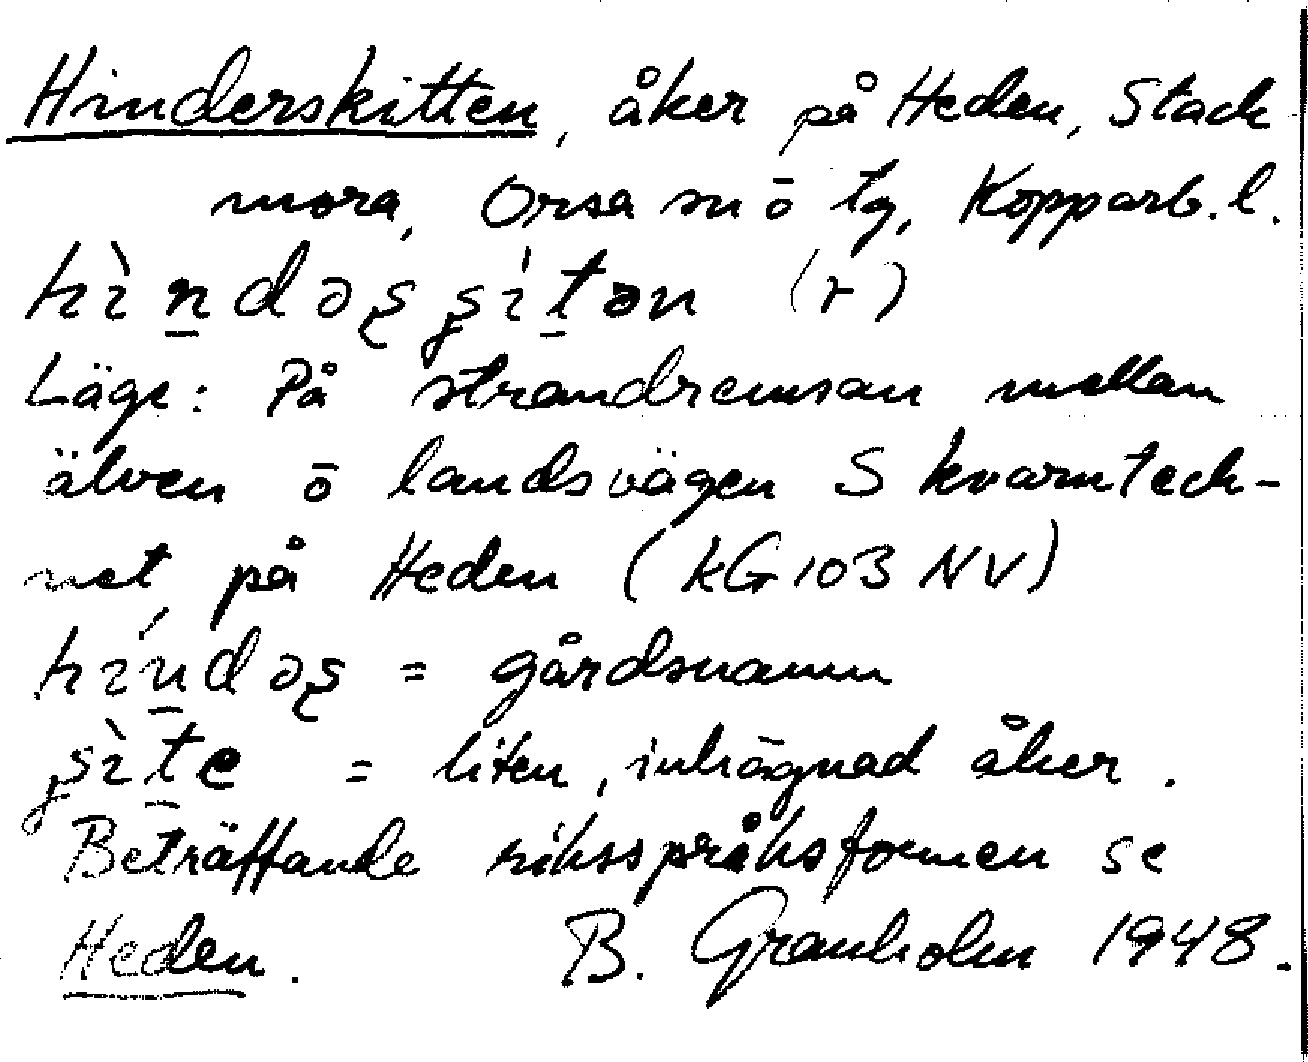 Hinderskitten, åker på Heden, Stack
mora, Orsa sn ō tg, Kopparb. l.
hìn̲dəʂ ʂít̲ən (r)
Läge: På strandremsan mellan
älven ō landsvägen S kvarntäck-
net, på Heden (kG 103 NV)
hín̲dəʂ = gårdsnamn
ʂìt̲e = liten, inhägnad åker.
Beträffande riksspråksformen se
Heden. B. Granholm 1948.